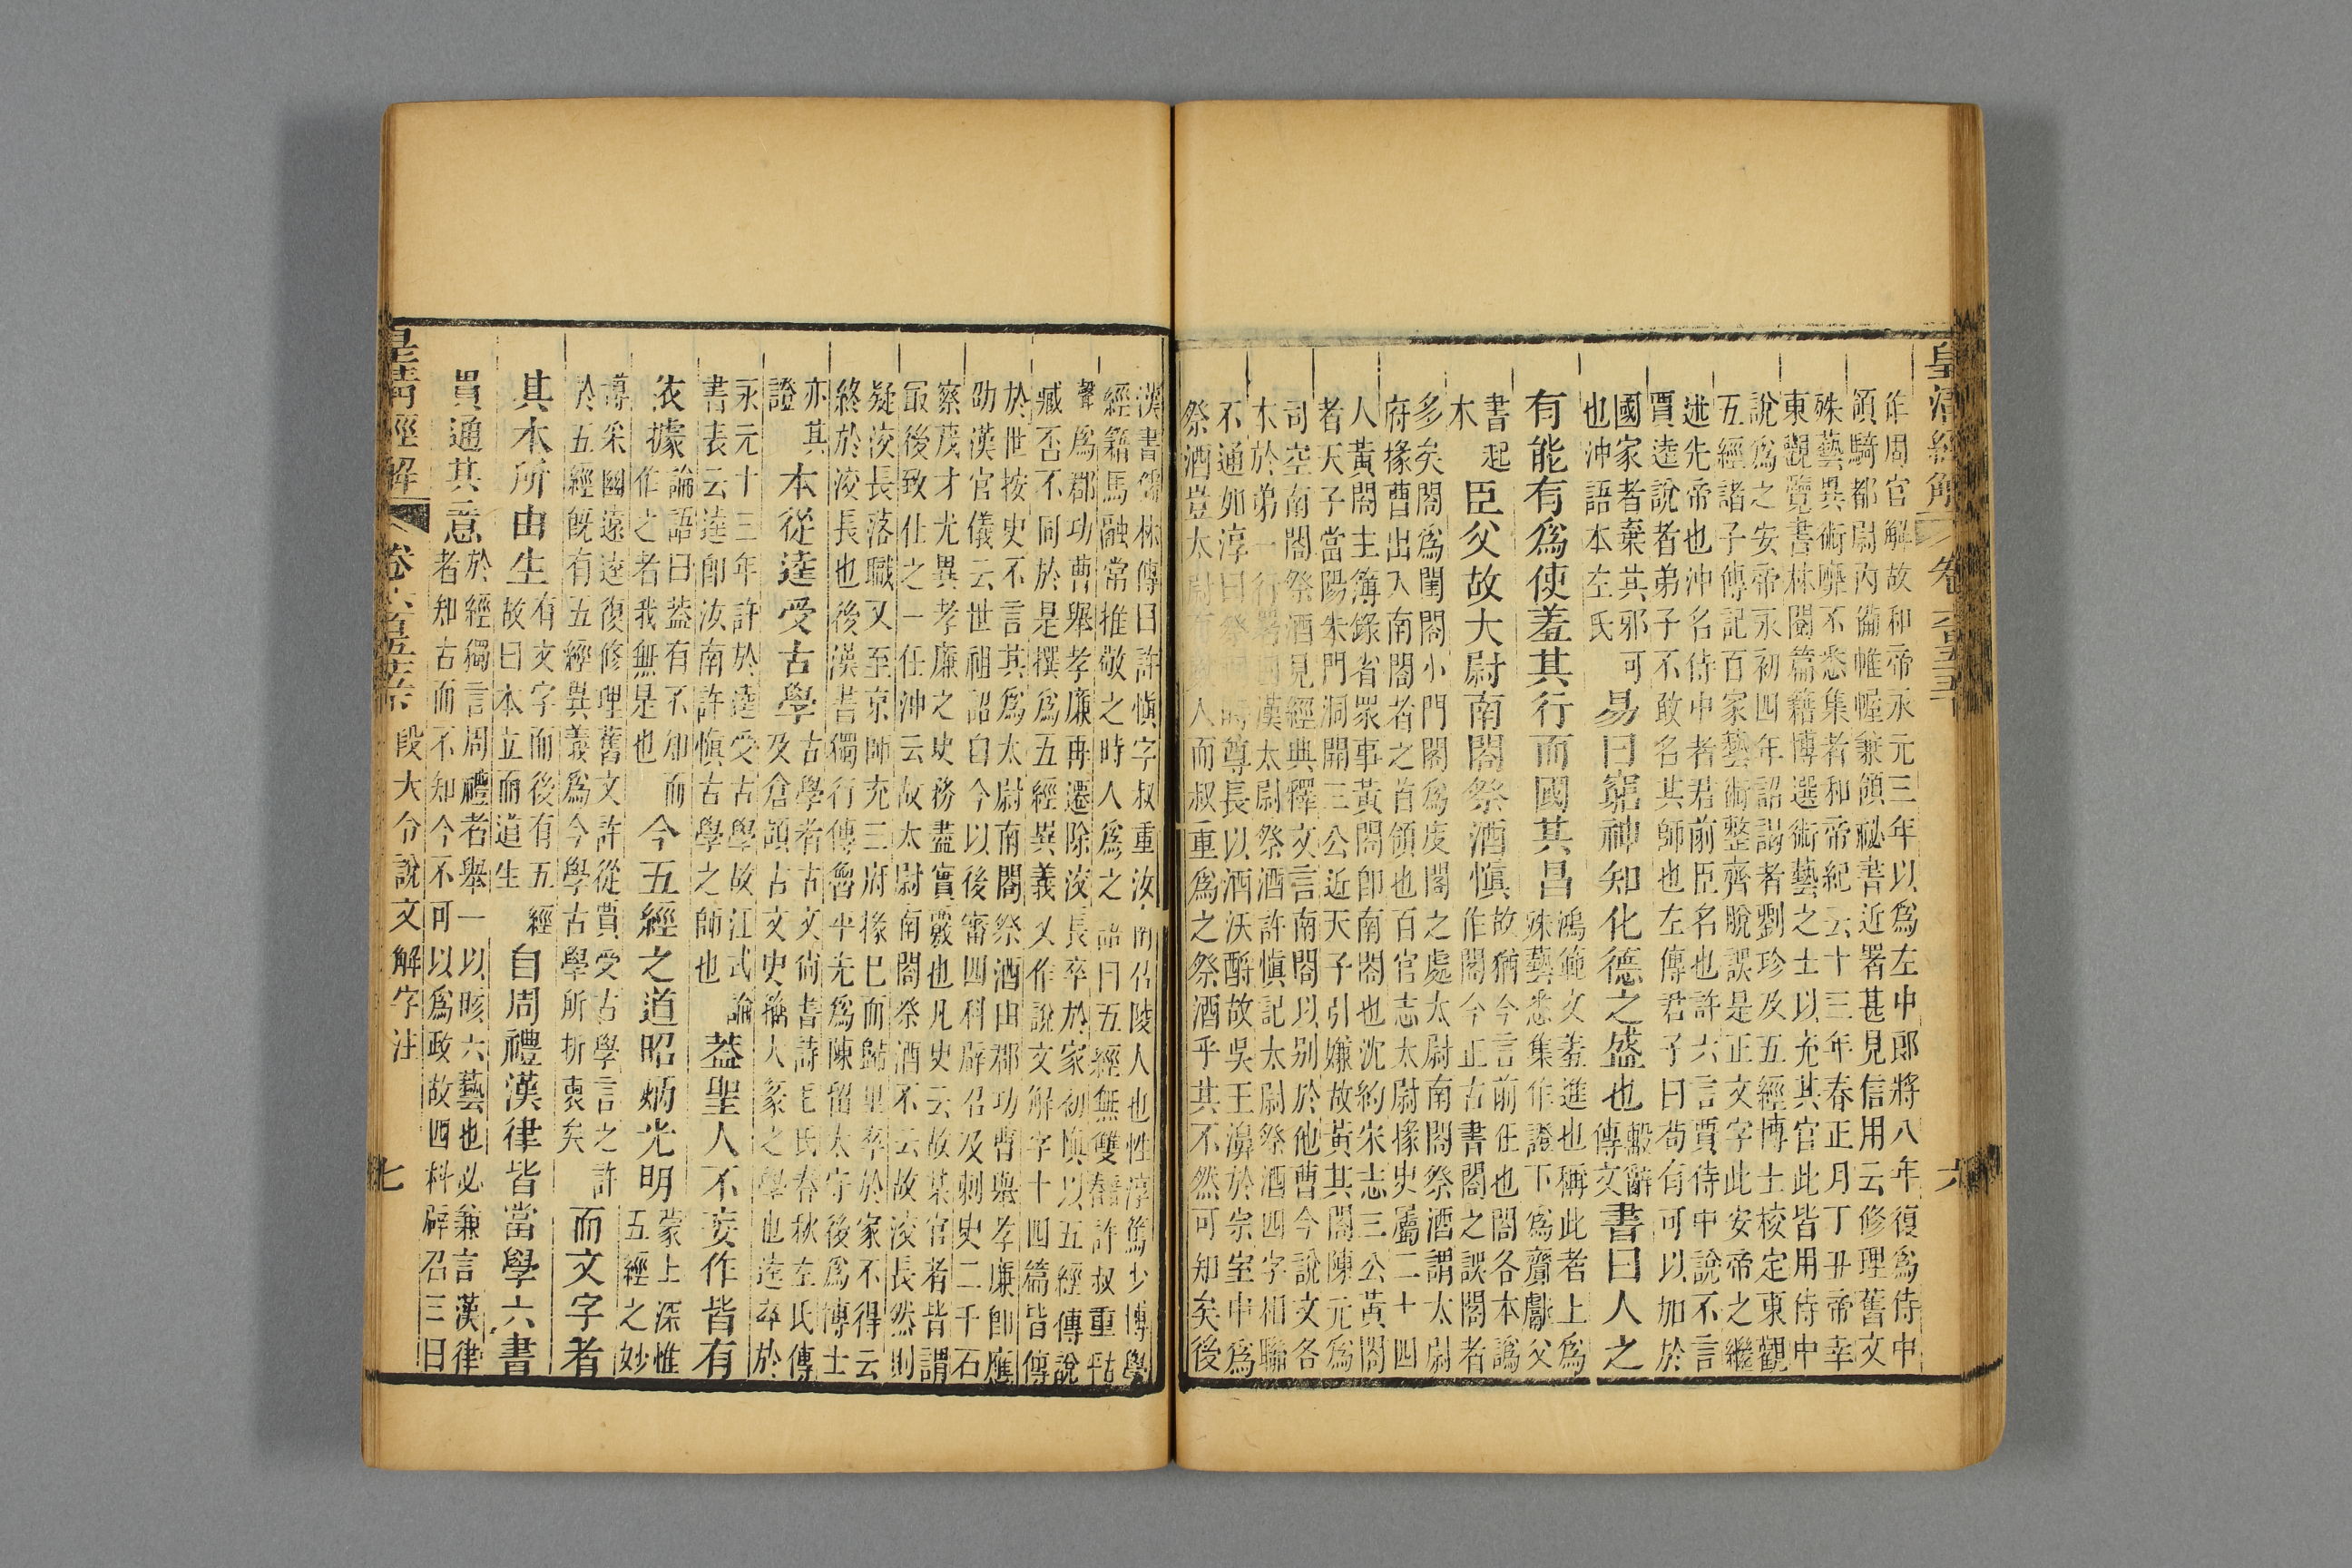 皇清經解 卷
六
作周官解故和帝永元三年以為左中郎將八年復為侍中
領騎都尉內備帷幄兼領祕書近署甚見信用云修理舊文
殊藝異術靡不悉集者和帝紀云十三年春正月丁丑帝幸
東觀覽書林閱篇籍博選術藝之士以充其官此皆用侍中
說為之安帝永初四年詔謁者劉珍及五經博士校定東觀
五經諸子傳記百家藝術整齊脫誤是正文字此安帝之繼
述先帝也沖名侍中者君前臣名也許六言賈侍中說不言
賈逵說者弟子不敢名其師也左傳君子曰苟有可以加於
國家者棄其邪可
也沖語本左氏
易曰窮神知化德之盛也
繫辭
傳文
書曰人之
有能有爲使羞其行而國其昌
鴻範文羞進也稱此者上爲
殊藝悉集作證下爲齎獻父
書起
本
臣父故大尉南閣祭酒慎
故猶今言前任也閣各本譌
作閤今正古書閣之誤閤者
多矣閤爲閨閤小門閣爲庋閣之處太尉南閣祭酒謂太尉
府掾曹出入南閣者之首領也百官志太尉掾史屬二十四
人黃閤主簿錄省眾事黃閤即南閣也沈約宋志三公黃閤
者天子當陽朱門洞開三公近天子引嫌故黃其閤陳元爲
司空南閣祭酒見經典釋文言南閣以別於他曹今說文各
本於弟一行署曰漢太尉祭酒許慎記太尉祭酒四字相聯
不通如淳曰祭時尊長以酒沃酹故吳王濞於宗室中爲
祭酒豈太尉人而叔重爲之祭酒乎其不然可知矣後
漢書儒林傳曰許慎字叔重汝南召陵人也性淳篤少博學
經籍馬融常推敬之時人爲之語曰五經無雙許叔重平
聲爲郡功曹舉孝廉再遷除洨長卒於家初慎以五經傳說
臧否不同於是撰爲五經異義又作說文解字十四篇皆傳
於世按史不言其爲太尉南閣祭酒由郡功曹舉孝廉即應
劭漢官儀云世祖詔曰今以後審四科辟召及刺史二千石
察茂才尤異孝廉之吏務盡實覈也凡史云故某官者皆謂
冣後致仕之一任沖云故太尉南閣祭酒不云故洨長然則
疑洨長落職又至京師充三府掾已而歸里卒於家不得云
終於洨長也後漢書獨行傳魯平先爲陳留太守後爲博士
亦其
證
本從逵受古學
古學者古文尚書詩毛氏春秋左氏傳
及倉頡古文史籒大篆之學也逵卒於
永元十三年許於逵受古學故江式論
書表云逵即汝南許慎古學之師也
葢聖人不妄作皆有
依據
論語曰葢有不知而
作之者我無是也
今五經之道昭炳光明
蒙上深惟
五經之妙
逵復修理舊文許從賈受古學言之許
於五經既有五經異義爲今學古學所折衷矣
而文字者
其本所由生
有文字而後有五經
故曰本立而道生
自周禮漢律皆當學六書
貫通其意
於經獨言周禮者舉一以晐六藝也必兼言漢律
者知古而不知今不可以爲政故四科辟召三曰
皇清經解 卷
段大令說文解字注
七